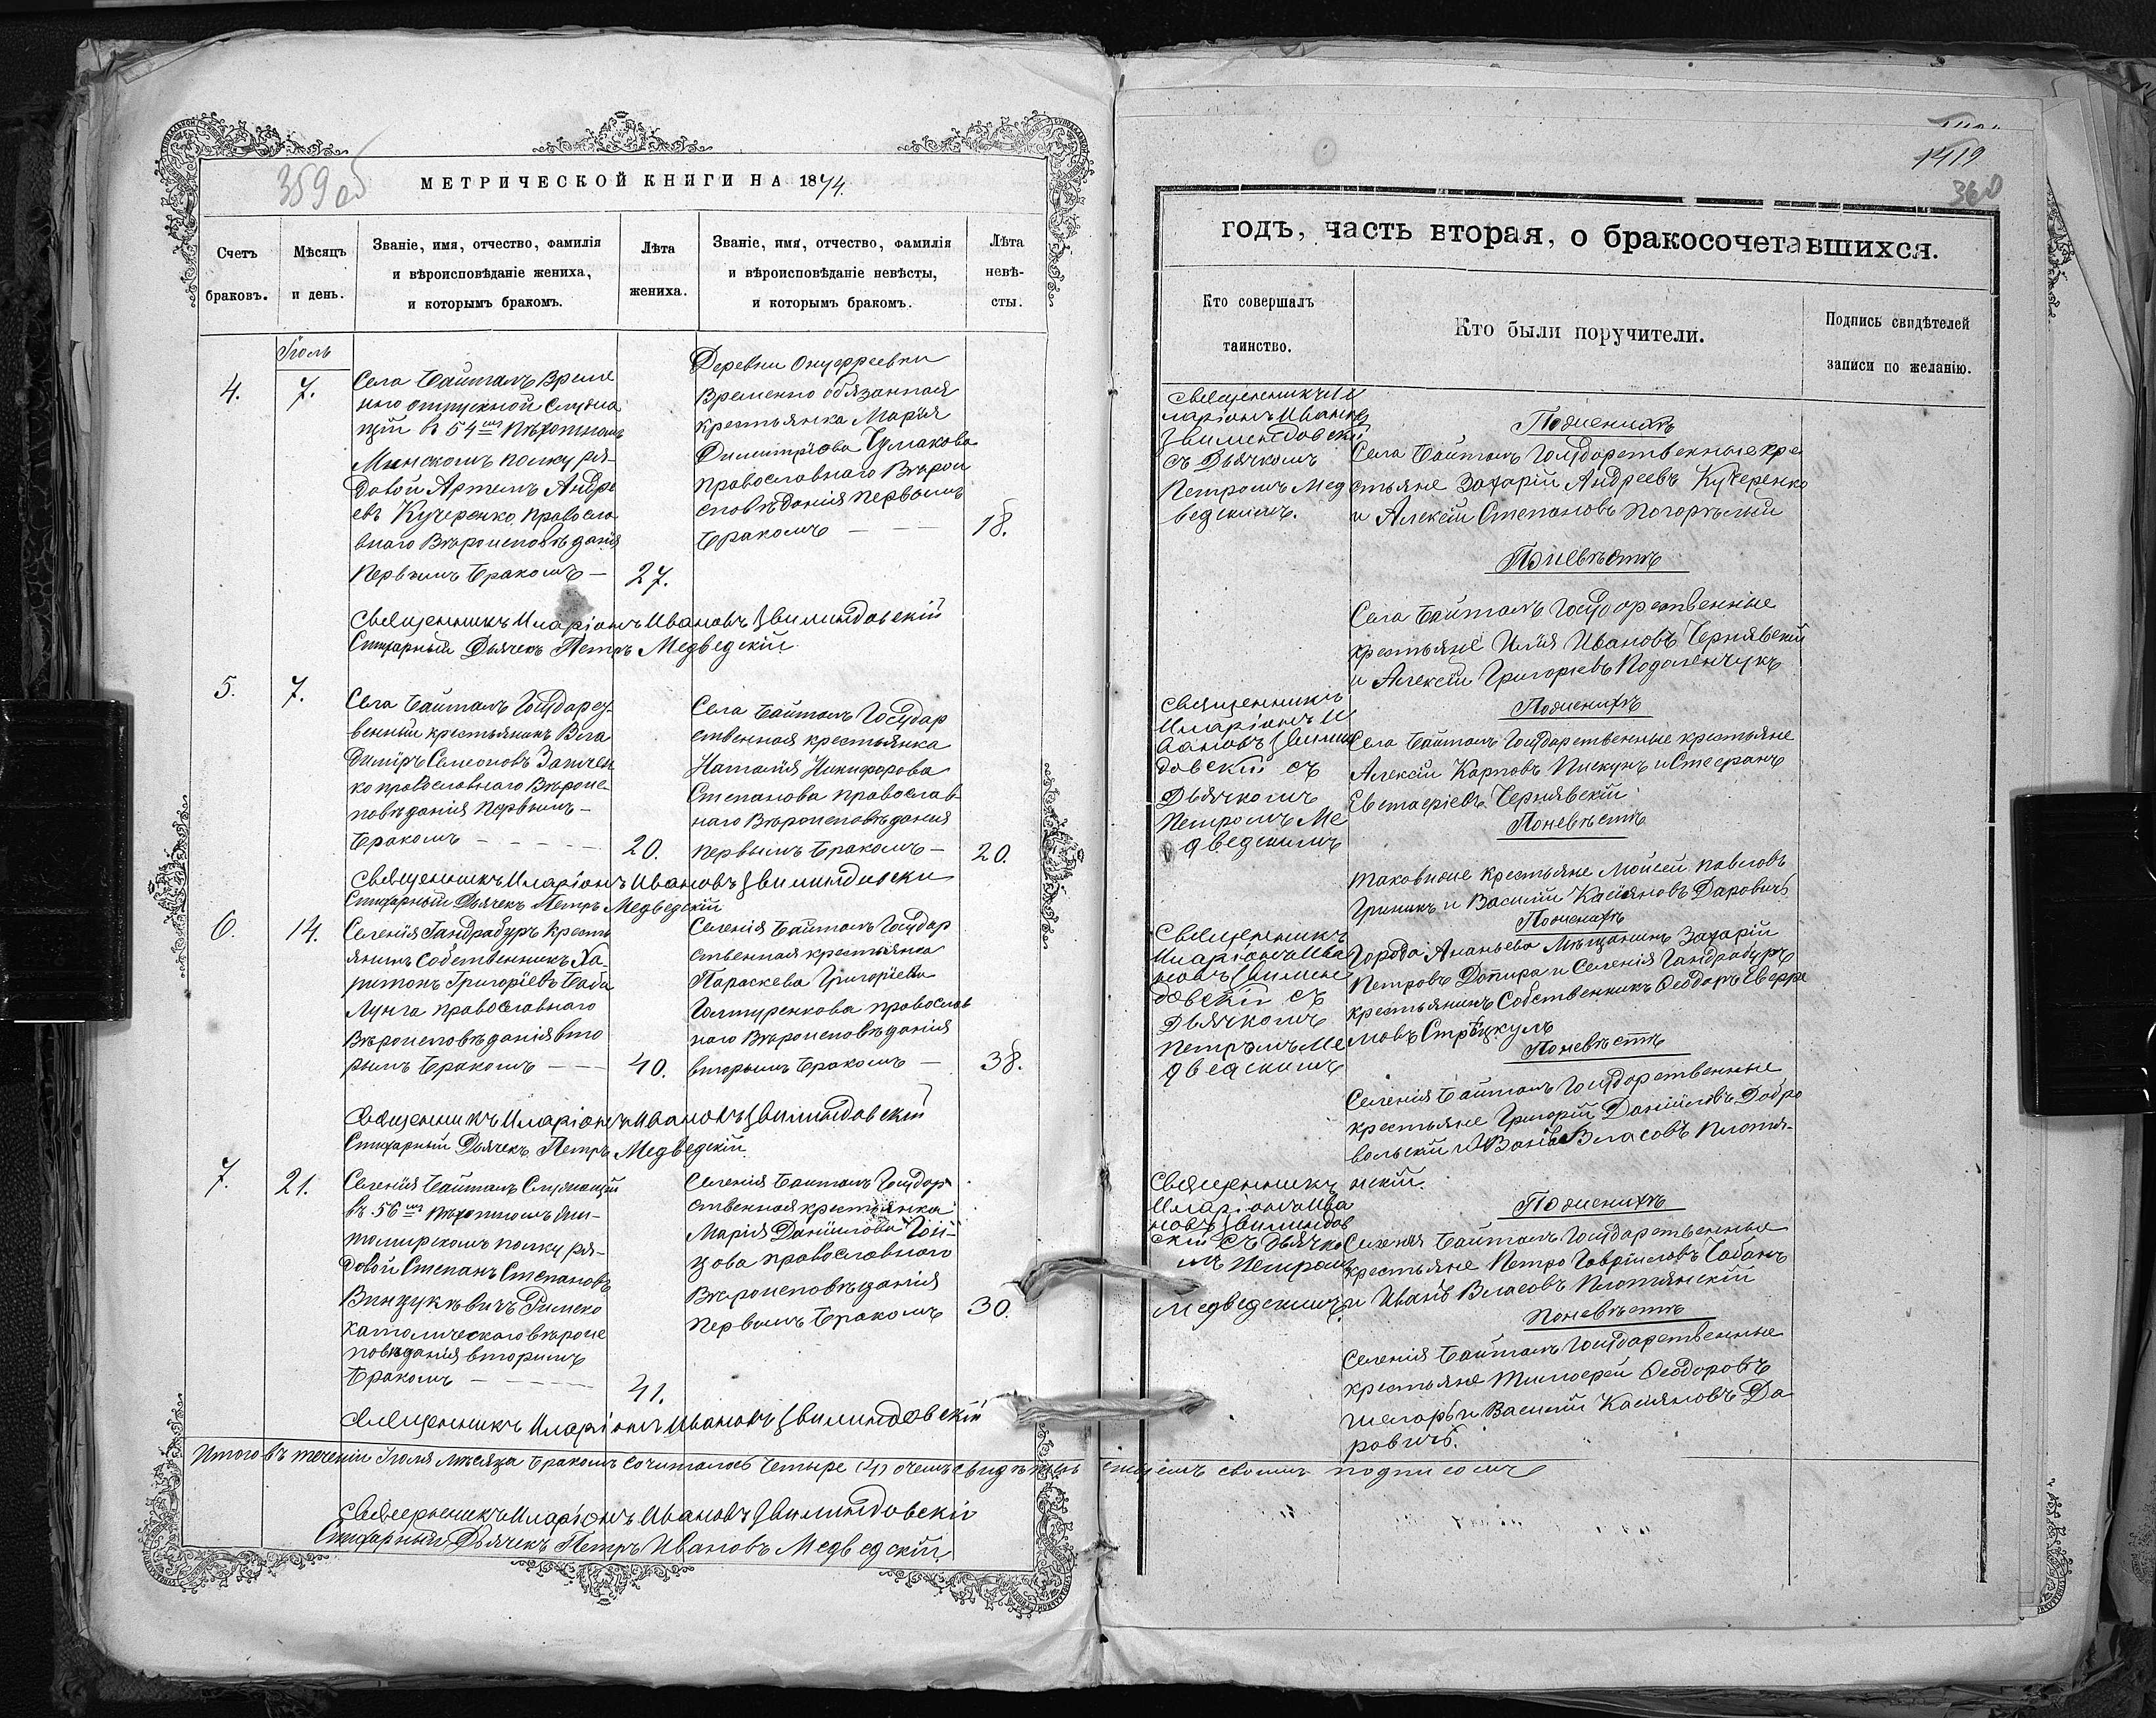 359 об
МЕТРИЧЕСКОЙ КНИГИ НА 1874.
Счетъ
браковъ.
Мѣсяцъ
и день.
Званіе, имя, отчество, фамилія
и вѣроисповѣданіе жениха,
и которымъ бракомъ.
Лѣта
жениха.
Званіе, имя, отчество, фамилія
и вѣроисповѣданіе невѣсты,
и которымъ бракомъ.
Лѣта
невѣ-
сты.
Іюль
4.
7.
Села Байталъ Време
нно отпускной Служа
щій в 54мъ Пѣхотномъ
Минскомъ полку ря-
довой Артемъ Андре
евъ Кучеренко Правосла
внаго Вѣроисповѣданія
Первымъ бракомъ —
27.
Деревни Онуфреевки
Временно обязанная
крестьянка Марія
Димитріова
православнаго Вѣрои
сповѣданія первымъ
бракомъ —
18.
Священникъ Иларіонъ Ивановъ Цвилиндовскій
Стихарный Дьячекъ Петръ Медведскій
5.
7.
Села Байталъ Государст-
венный крестьянинъ Вла
диміръ Семеоновъ
ко православнаго Вѣроис-
повѣданія Первымъ —
бракомъ —
20.
Села Байталъ Государ
ственная крестьянка
Наталія Никифорова
Степанова православ
наго Вѣроисповѣдания
первымъ бракомъ —
20.
Священникъ Иларіонъ Ивановъ Цвилиндовски
Стихарный Дьячекъ Петръ Медведскій
6.
14.
Селенія Гандрабуръ кресть
янинъ Собственникъ Ха-
ритонъ Григоріевъ Баба
Лунга православнаго
Вѣроисповѣданія вто
рымъ бракомъ —
40.
Селенія Байталъ Государ
ственная крестьянка
Параскева Григоріева
православ
наго Вѣроисповѣданія
вторымъ бракомъ —
38.
Священникъ Иларіонъ Ивановъ Цвилиндовскій
Стихарный Дьячекъ Петръ Медведскій
7.
21.
Селенія Байталъ Служащій
въ 56мъ Пѣхотномъ Жи-
томирскомъ полку ря-
довой Степанъ Степановъ
Винцукѣвичъ Римско
католическаго вѣроис
повѣданія вторымъ
бракомъ —
41.
Селенія Байталъ Государ
ственная крестьянка
Марія Даніилова Гон-
цова православнаго
Вѣроисповѣданія
Первымъ бракомъ
30.
Священникъ Иларіонъ Ивановъ Цвилиндовскій
Итого въ теченіи Іюля мѣсяца бракомъ сочиталось четыре (4) о чемъ свидѣтель
ствуемъ своимъ подписомъ
Священникъ Иларіонъ Ивановъ Цвилиндовскій
Стихарный Дьячекъ Петръ Ивановъ Медведскій
1419
360
годъ, часть вторая, о бракосочетавшихся.
Кто совершалъ
таинство.
Кто были поручители.
Подпись свидѣтелей
записи по желанію.
Священникъ И
ларіонъ Ивановъ
Цвилиндовскій
съ Дьячкомъ
Петромъ Мед
ведскимъ.
По женихѣ
Села Байталъ Государственные кре
стьяне Захарій Андреевъ Кучеренко
и Алексій Степановъ Погорѣлый
По невѣстѣ
Села Байталъ Государственные
крестьяне Илія Ивановъ Чернявскій
и Алексій Григоріевъ Подоленчукъ
Священникъ
Иларіонъ И
вановъ Цвилин
довскій съ
Дьячкомъ
Петромъ Ме
дведскимъ
По женихѣ
Села Байталъ Государственные крестьяне
Алексій Карповъ Пискунъ и Стефанъ
Евстафіевъ Чернявскій
По невѣстѣ
таковиже крестьяне Мойсей Павловъ
Гриникъ и Василій Касіяновъ Даровичъ
Священникъ
Иларіонъ Ива
новъ Цвилин
довскій съ
Дьячкомъ
Петромъ Ме
дведскимъ
По женихѣ
Города Ананьева Мѣщанинъ Захарій
Петровъ Допира и Селенія Гандрабуръ
крестьянинъ Собственникъ Ѳеодоръ Евфре
мовъ
По невѣстѣ
Селенія Байталъ Государственные
крестьяне Григорій Даніиловъ Добро
вольскій и Иванъ Власовъ Плотян-
скій.
Священникъ
Иларіонъ Ива
новъ Цвилиндов
скій съ Дьячко
мъ Петромъ
Медведскимъ
По женихѣ
Селенія Байталъ Государственные
крестьяне Петро Гавріиловъ Чабанъ
и Иванъ Власовъ Плотянскій
По невѣстѣ
Селенія Байталъ Государственные
крестьяне Тимофей Ѳеодоровъ
и Василій Касіяновъ Да
ровичъ.